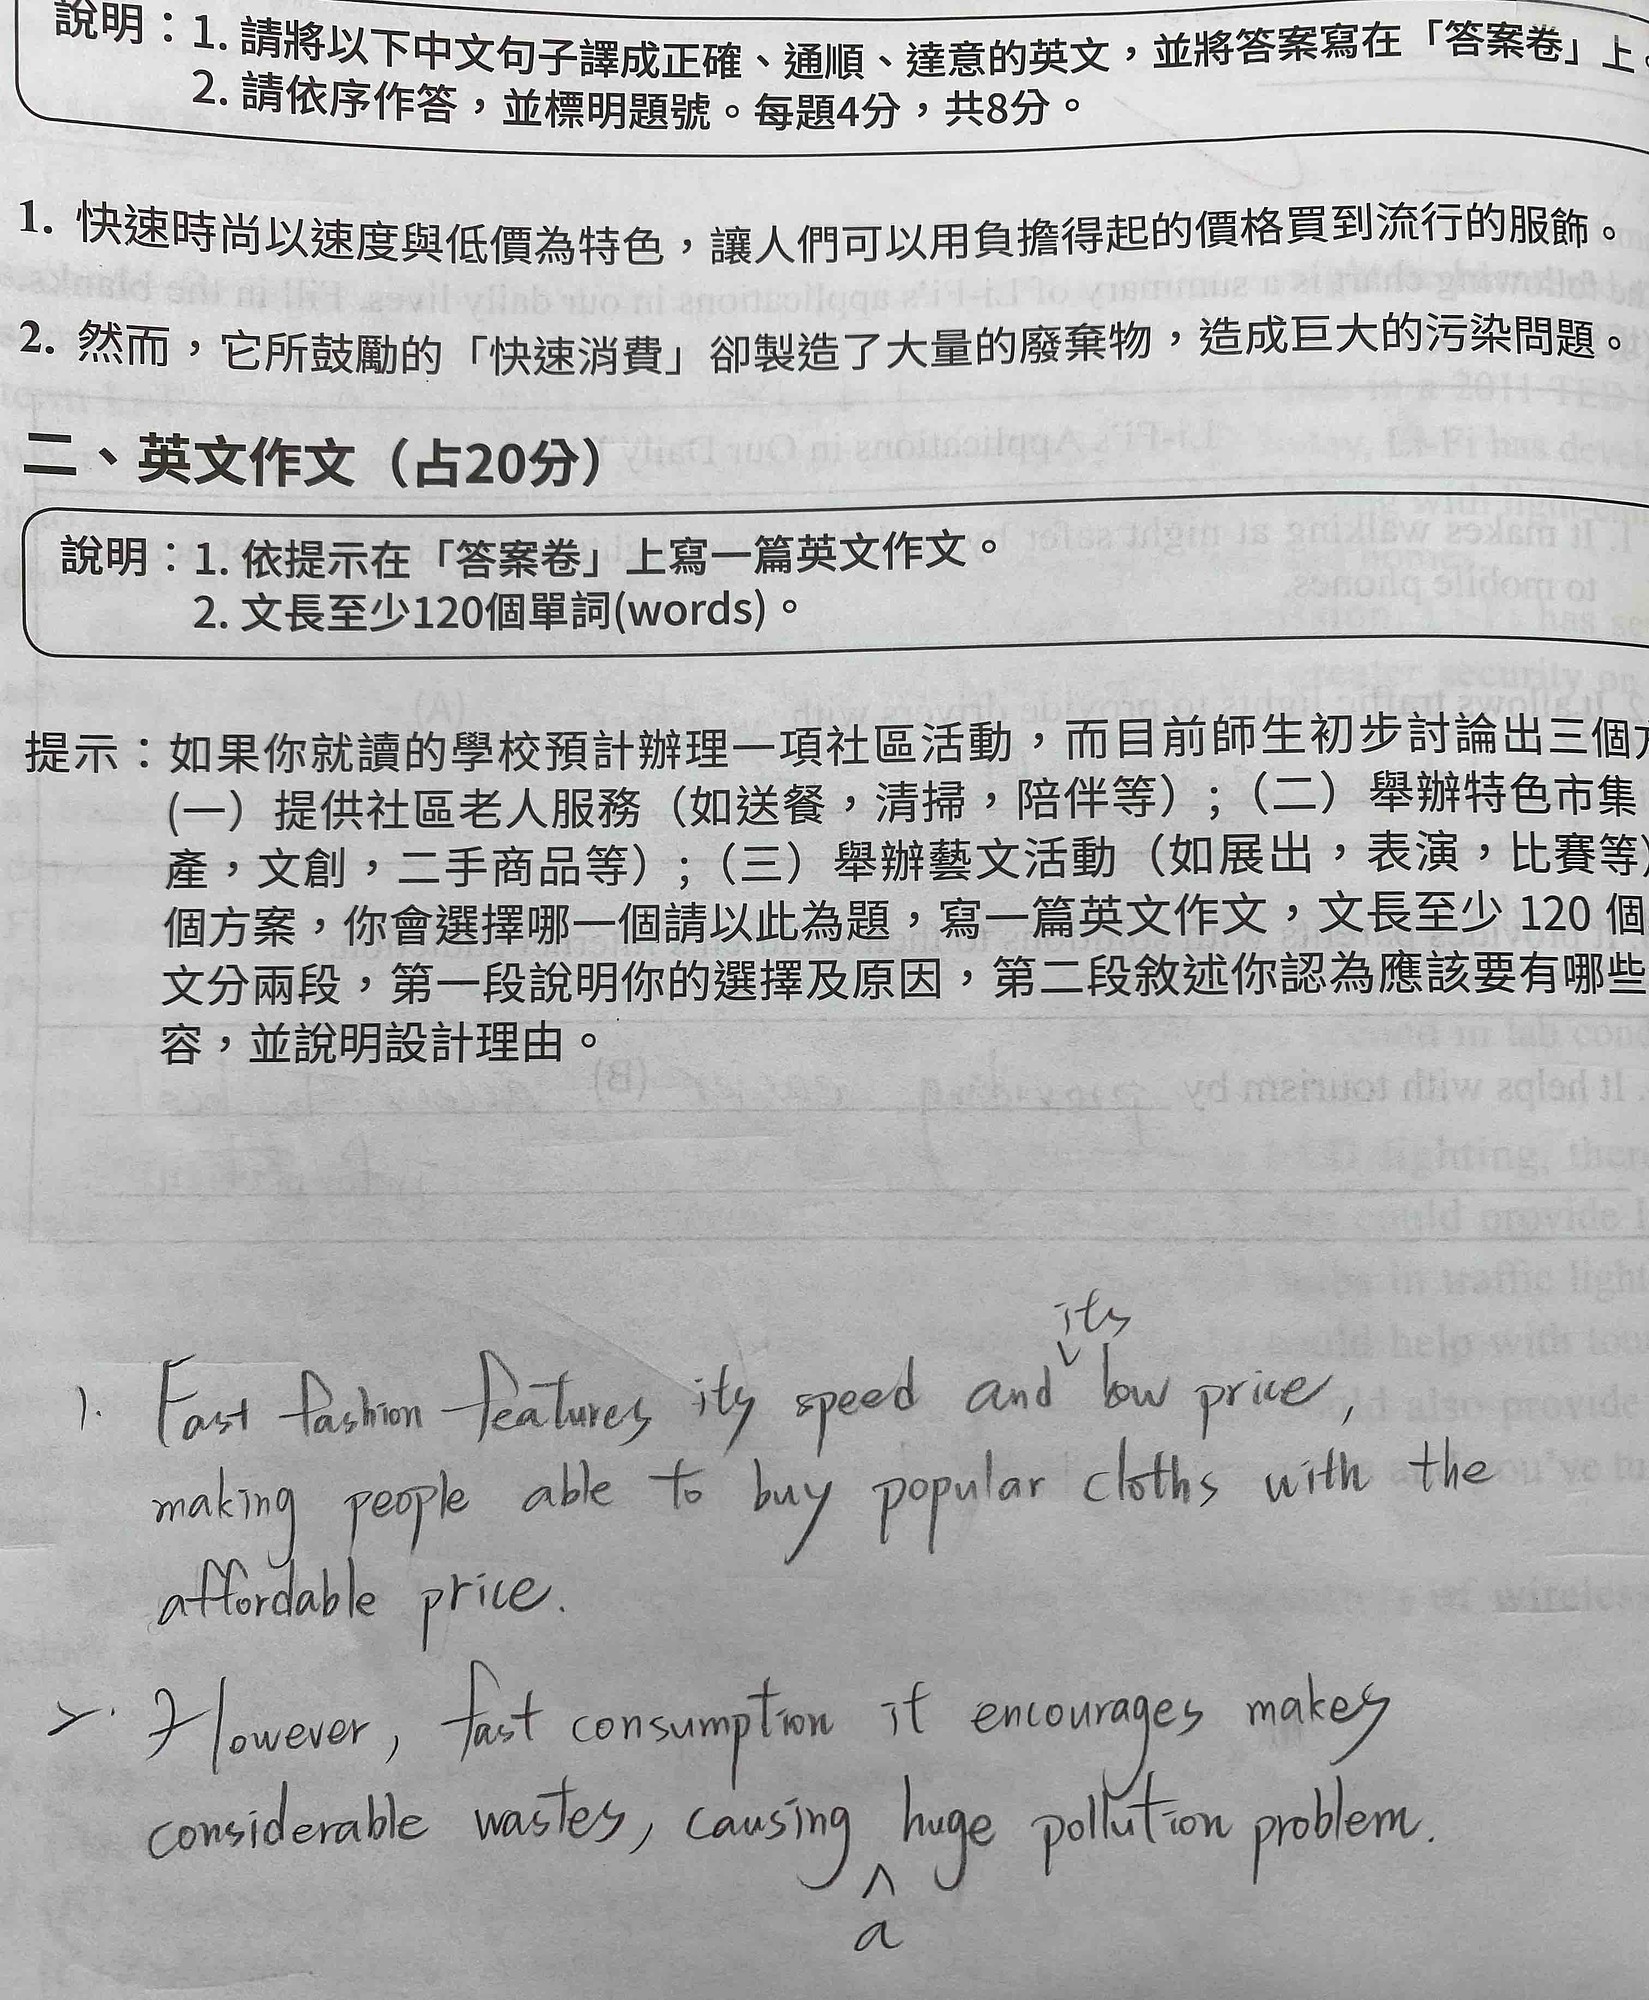 說明：1. 請將以下中文句子譯成正確、通順、達意的英文，並將答案寫在「答案卷」上。
2. 請依序作答，並標明題號。每題4分，共8分。
1. 快速時尚以速度與低價為特色，讓人們可以用負擔得起的價格買到流行的服飾。
2. 然而，它所鼓勵的「快速消費」卻製造了大量的廢棄物，造成巨大的污染問題。
二、英文作文（占20分）
說明：1. 依提示在「答案卷」上寫一篇英文作文。
2. 文長至少120個單詞(words)。
提示：如果你就讀的學校預計辦理一項社區活動，而目前師生初步討論出三個方
(一）提供社區老人服務（如送餐，清掃，陪伴等）；（二）舉辦特色市集
產，文創，二手商品等）；（三）舉辦藝文活動（如展出，表演，比賽等）
個方案，你會選擇哪一個請以此為題，寫一篇英文作文，文長至少 120 個
文分兩段，第一段說明你的選擇及原因，第二段敘述你認為應該要有哪些
容，並說明設計理由。
its
1. Fast fashion features its speed and low price,
making people able to buy popular cloths with the
affordable price.
2. However, fast consumption it encourages makes
considerable wastes, causing huge pollution problem.
a